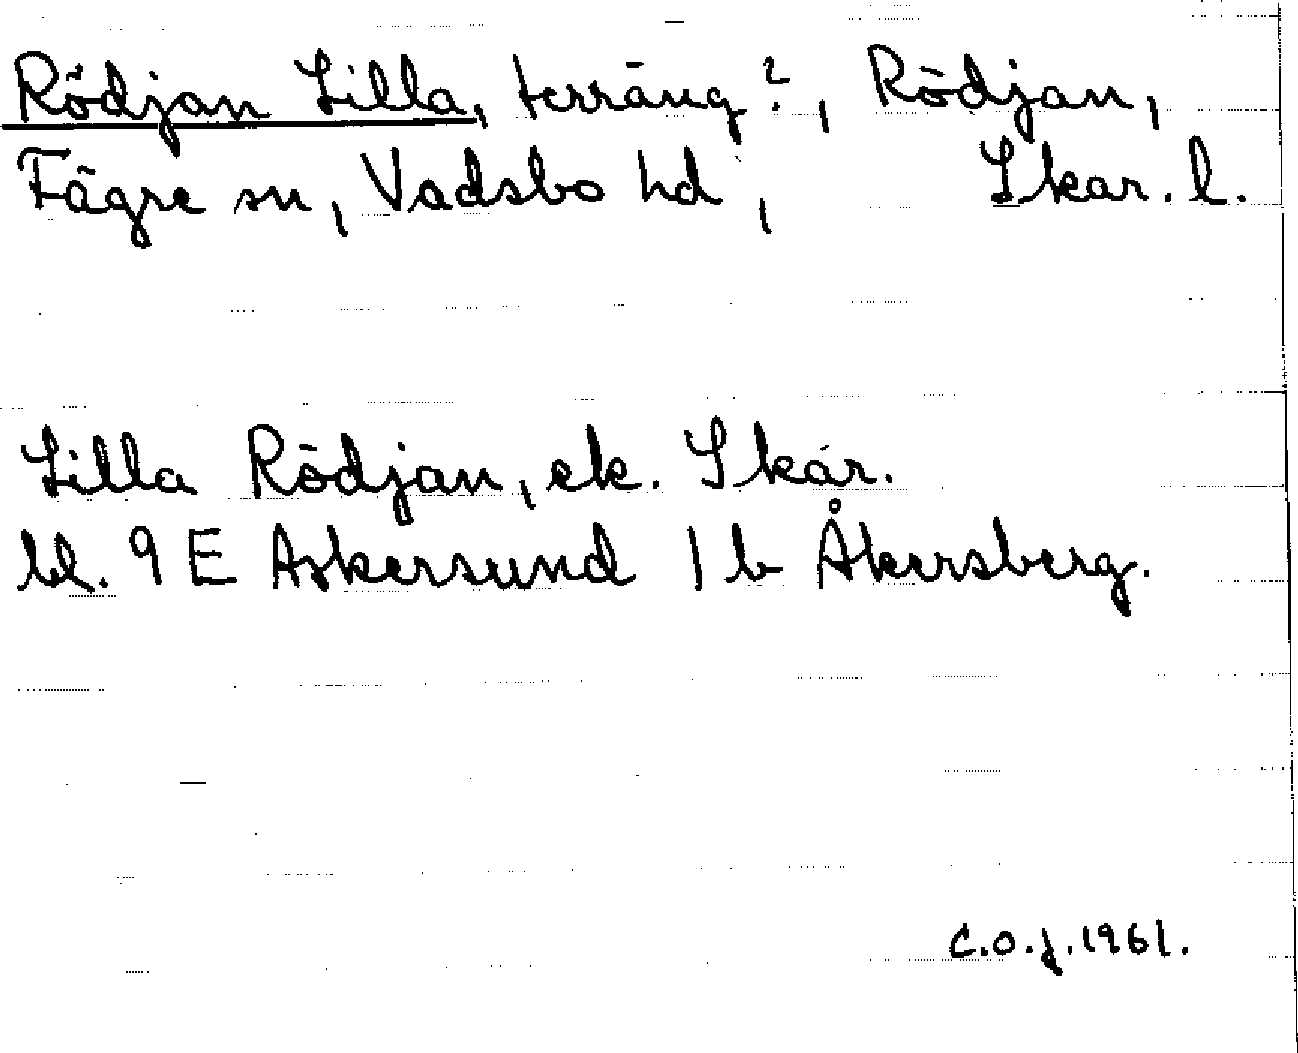 Rödjan Lilla, terräng?, Rödjan,
Fägre sn, Vadsbo hd, Skar. l.
Lilla Rödjan, ek. Skar.
bl. 9 E Askersund 1 b Åkersberg.
C.O.J. 1961.